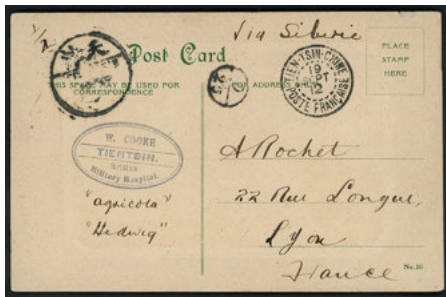 1/2
Via Siberie
Post Card
THIS SPACE MAY BE USED FOR
CORRESPONDENCE
FOR ADDRESS ONLY
PLACE
STAMP
HERE
TIEN-TSIN-CHINE
19
SEPT
12
POSTE FRANÇAISE
W. COOKE
TIENTSIN.
British
Military Hospital.
"agricola"
"Hedwig"
A Rochet
22 Rue Longue,
Lyon
France
No.26